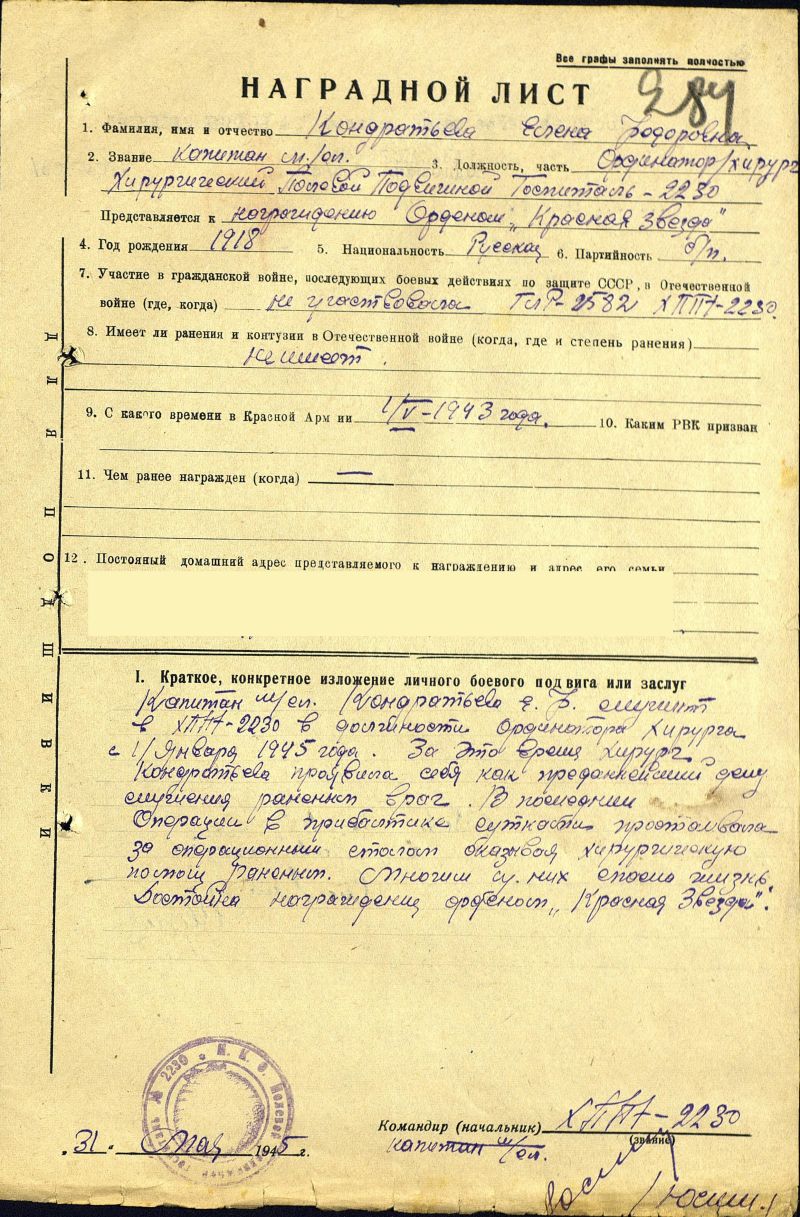 Все графы заполнять полностью
284
НАГРАДНОЙ ЛИСТ
1. Фамилия, имя и отчество Кондратьева Елена Фодоровна
2. Звание капитан м/сл. 3. Должность, часть Ординатор/хирург
Хирургический Полевой Подвижной Госпиталь-2230
Представляется к награждению Орденом „Красная Звезда"
4. Год рождения 1918 5. Национальность Русская 6. Партийность б/п.
7. Участие в гражданской войне, последующих боевых действиях по защите СССР, в Отечественной
войне (где, когда) не участвовала ГЛР-2582 ХППГ-2230.
8. Имеет ли ранения и контузии в Отечественной войне (когда, где и степень ранения)
не имеет.
9. С какого времени в Красной Арм ии 1/V-1943 года. 10. Каким РВК призван
11. Чем ранее награжден (когда) —
12. Постояный домашний адрес представляемого к награждению и адрес его семьи
ДЛЯ ПОДШИВКИ
I. Краткое, конкретное изложение личного боевого подвига или заслуг
Капитан м/сл. Кондратьева Е. Ф. служит
в ХППГ-2230 в должности ординатора хирурга
с 1/Января 1945 года. За это время хирург
Кондратьева проявила себя как преданнейший делу
служения раненым врач. В последних
Операции в прибалтике сутками простаивала
за операционным столом оказывая хирургическую
помощ раненым. Многим из них спасла жизнь.
Достойна награждения орденом „Красная Звезда".
№ 2230 Н. К. О. Полевой
Командир (начальник) ХППГ-2230
(звание)
31. Мая 1945 г.
капитан м/сл.